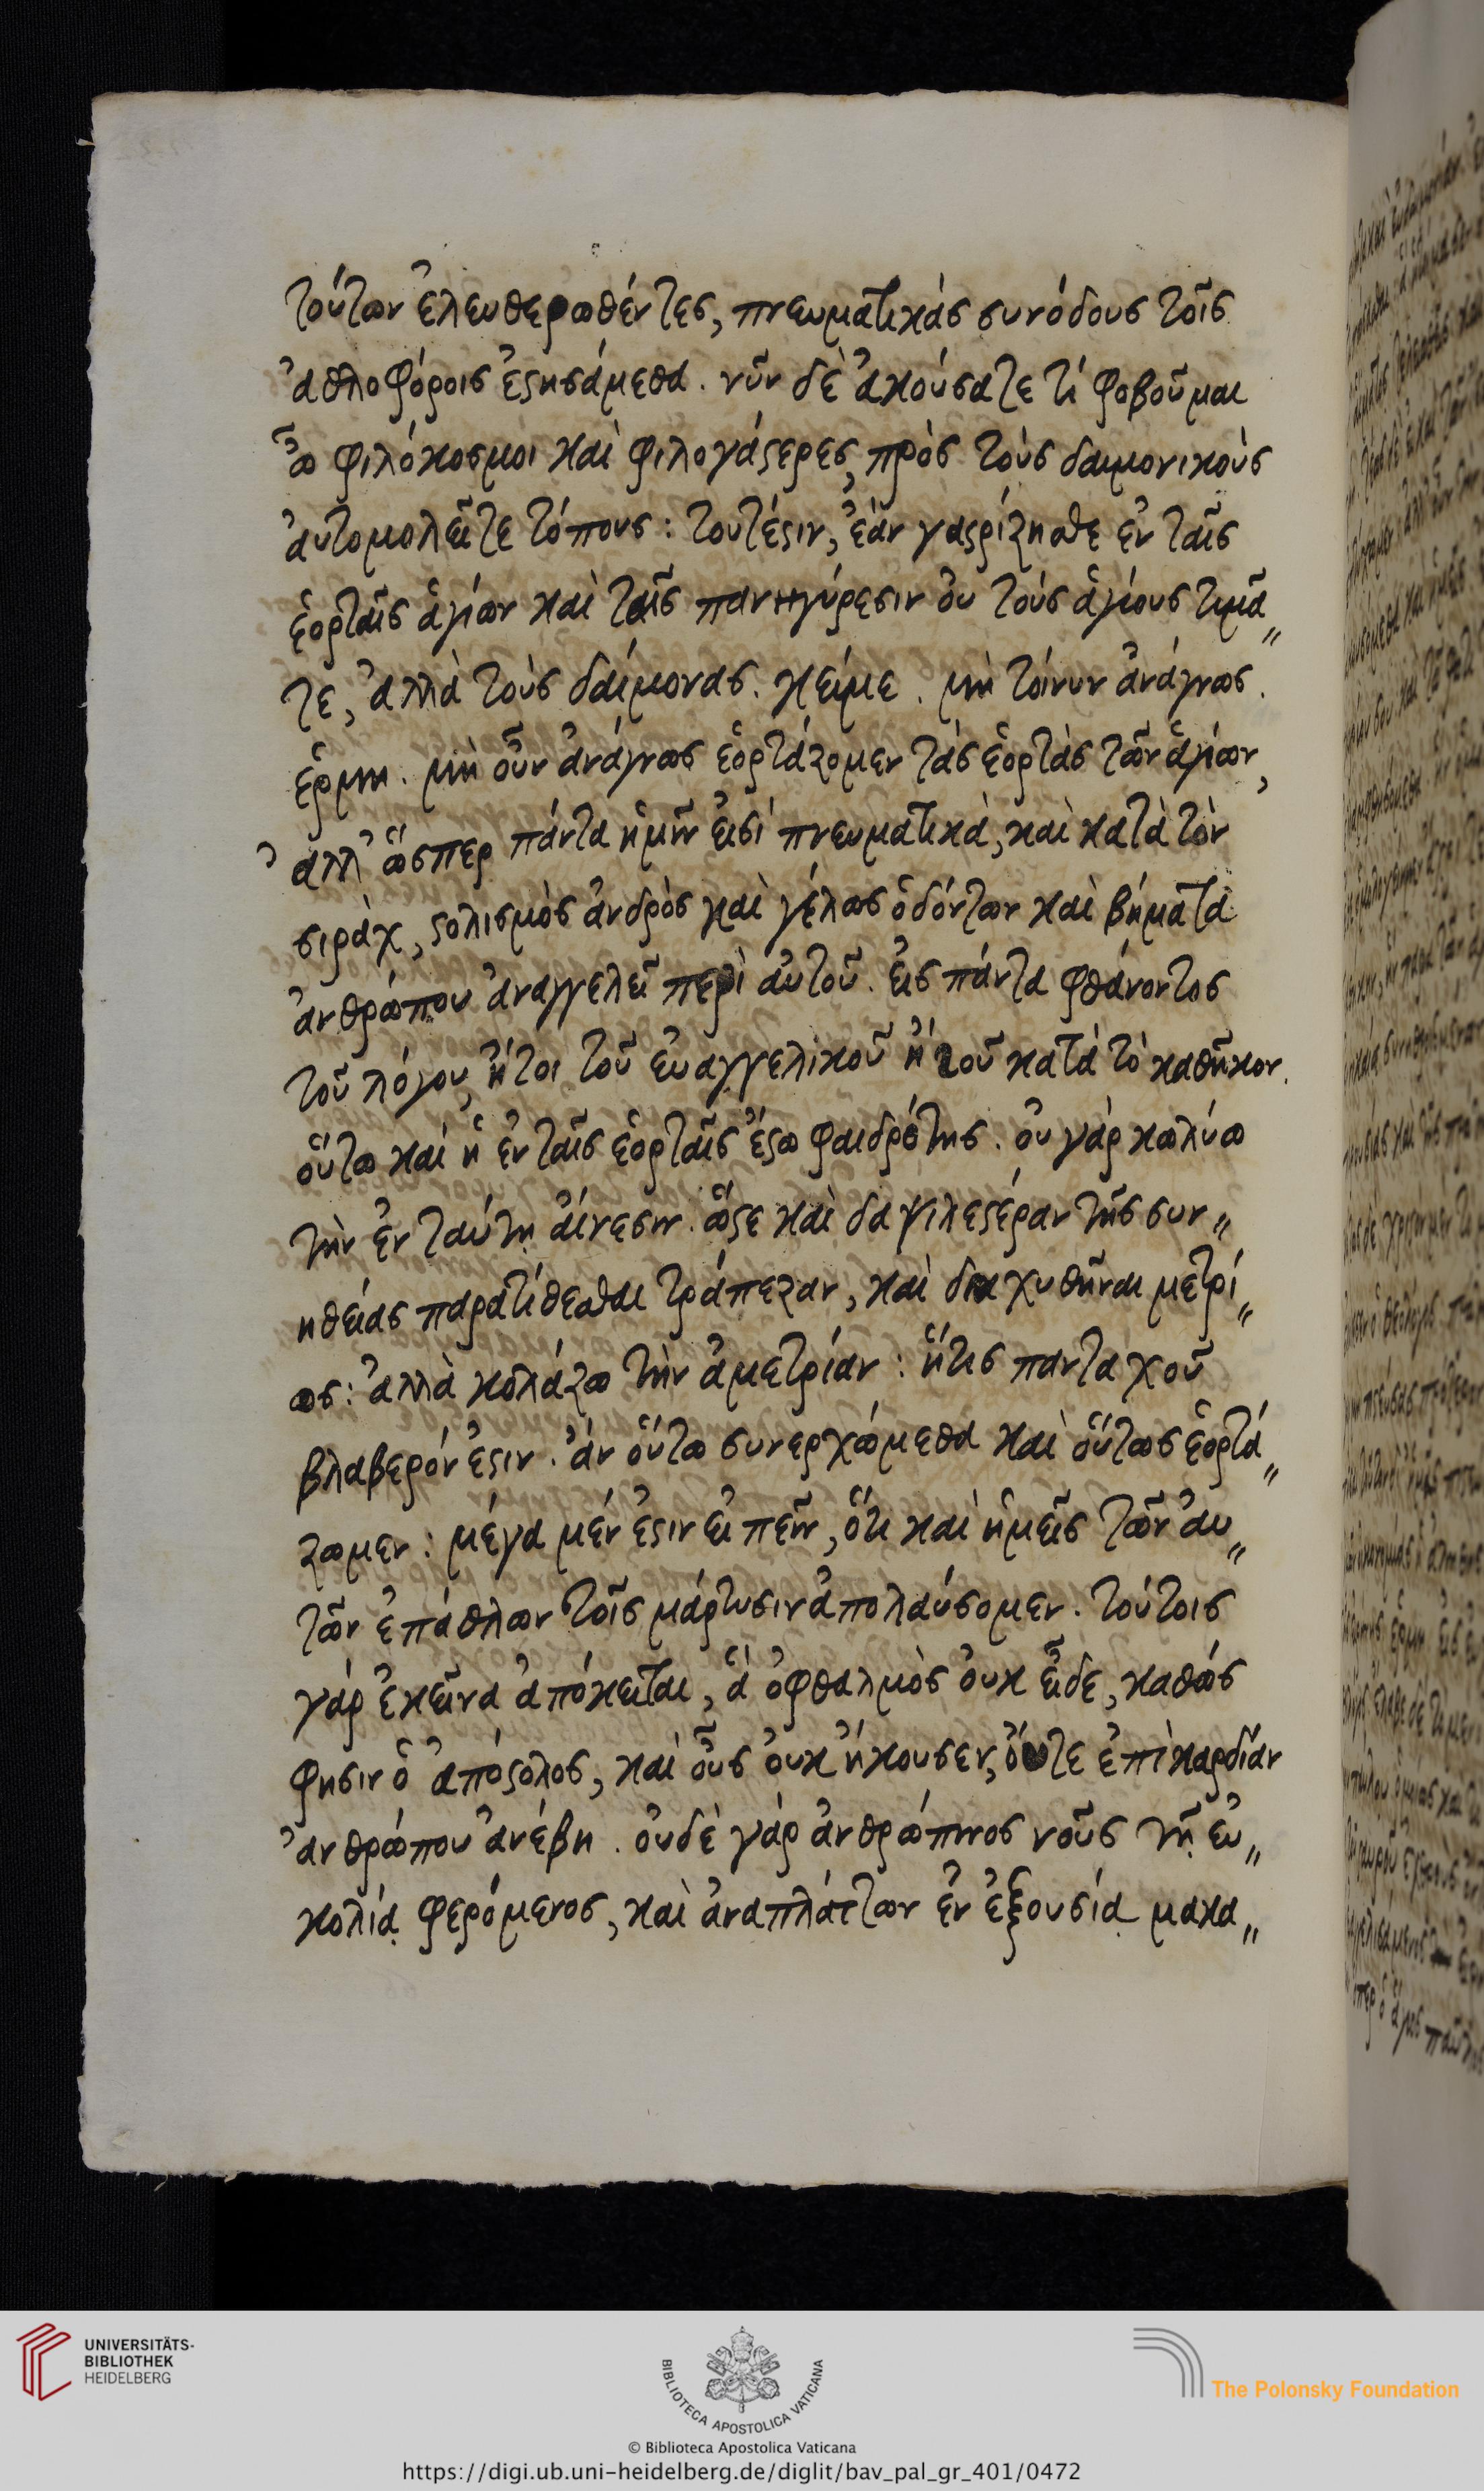 τούτων ἐλευθερωθέντες, πνευματικὰς συνόδους τοῖς
ἀθλοφόροις ἐϛησάμεθα. νῦν δὲ ἀκούσατε τί φοβοῦμαι
ὦ φιλόκοσμοι καὶ φιλογάϛερες, πρὸς τοὺς δαιμονικοὺς
ἀυτομολεῖτε τόπους: τουτέϛιν, ἐὰν γαϛρίζησθε ἐν ταῖς
ἑορταῖς ἁγίων καὶ ταῖς πανηγύρεσιν ὀυ τοὺς ἁγίους τιμᾶ〃
τε, ἀλλὰ τοὺς δαίμονας. κείμε. μὴ τοίνυν ἀνάγνως.
ἑρμη. μὴ οὖν ἀνάγνως ἑορτάζομεν τὰς ἑορτὰς τῶν ἁγίων,
ἀλλ' ὥσπερ πάντα ἡμῖν εἰσὶ πνευματικὰ, καὶ κατὰ τὸν
σιράχ, ϛολισμὸς ἀνδρὸς καὶ γέλως ὀδόντων καὶ βήματα
ἀνθρώπου ἀναγγελεῖ περὶ ἀυτοῦ. εἰς πάντα φθάνοντος
τοῦ λόγου, ἤτοι τοῦ ἐυαγγελικοῦ ἢ τοῦ κατὰ τὸ καθῆκον.
οὕτω καὶ ἡ ἐν ταῖς ἑορταῖς ἔϛω φαιδρότης. ὀυ γὰρ κωλύω
τὴν ἐν ταύτῃ ἀίνεσιν. ὥϛε καὶ δαψιλεϛέραν τῆς συν〃
ηθείας παρατίθεσθαι τράπεζαν, καὶ διαχυθῆναι μετρί〃
ως: ἀλλὰ κολάζω τὴν ἀμετρίαν: ἥτις πανταχοῦ
βλαβερόν ἐϛιν. ἀν οὕτω συνερχώμεθα καὶ οὕτως ἑορτά〃
ζωμεν: μέγα μέν ἐϛιν εἰπεῖν, ὅτι καὶ ἡμεῖς τῶν ἀυ〃
τῶν ἐπάθλων τοῖς μάρτυσιν ἀπολαύσομεν. τούτοις
γὰρ ἐκεῖνα ἀπόκειται, ἃ ὀφθαλμὸς ὀυκ εἶδε, καθώς
φησιν ὁ ἀπόϛολος, καὶ οὖς ὀυκ ἤκουσεν, ὄυτε ἐπὶ καρδίαν
ἀνθρώπου ἀνέβη. ὀυδὲ γὰρ ἀνθρώπινος νοῦς τῇ ἐυ〃
κολίᾳ φερόμενος, καὶ ἀναπλάττων ἐν ἐξουσίᾳ μακα〃
UNIVERSITÄTS-
BIBLIOTHEK
HEIDELBERG
BIBLIOTECA APOSTOLICA VATICANA
The Polonsky Foundation
© Biblioteca Apostolica Vaticana
https://digi.ub.uni-heidelberg.de/diglit/bav_pal_gr_401/0472